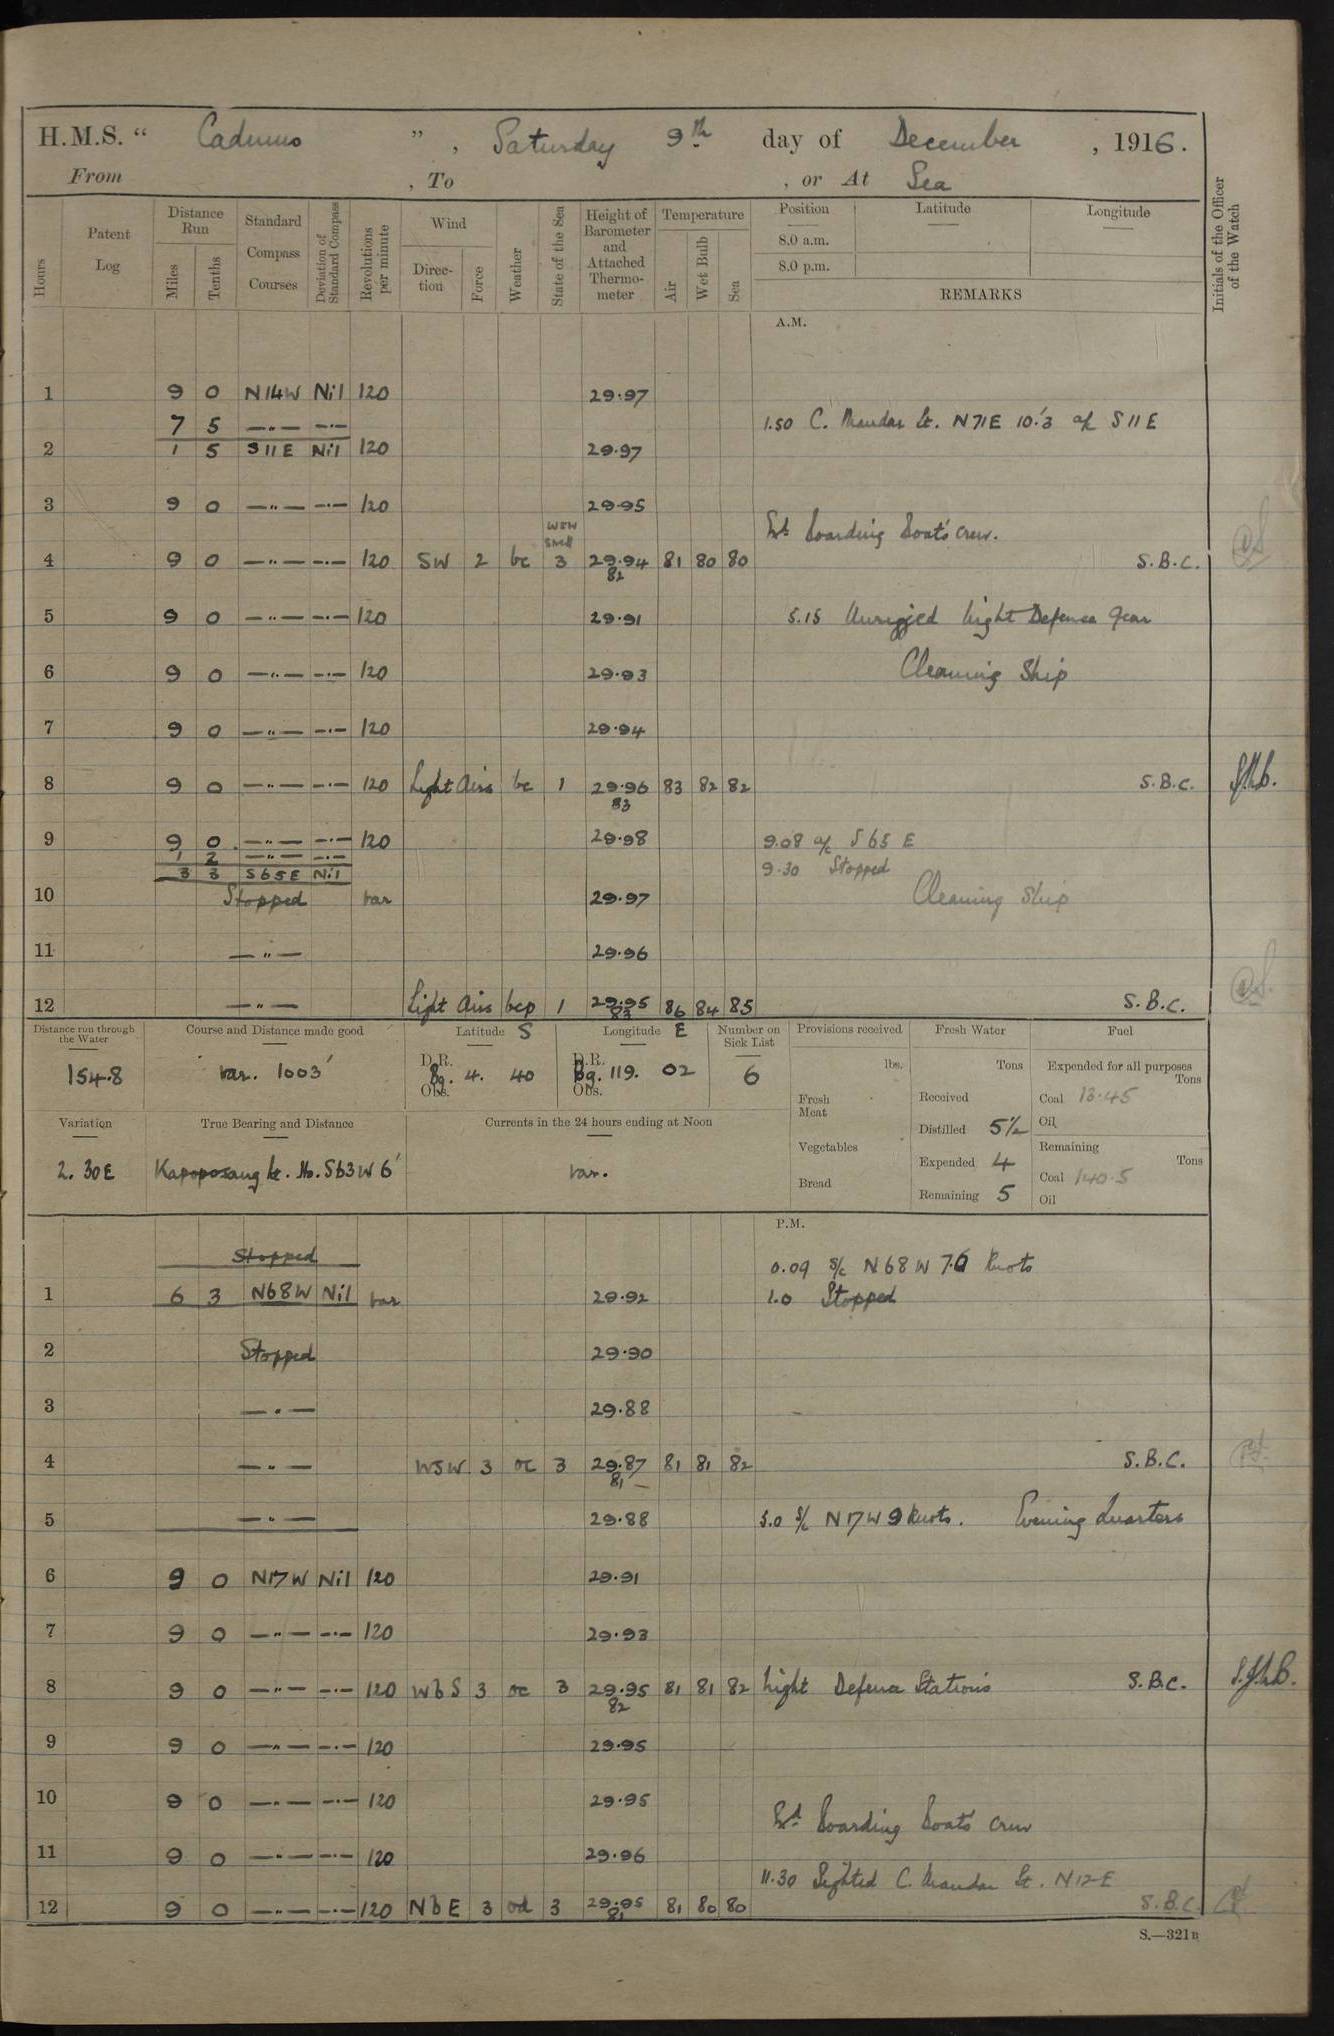 H.M.S. " Cadmus ", Saturday 9th day of December, 1916.
From , To , or At Sea
Hours Patent Log Distance Run Miles Tenths Standard Compass Courses Deviation of Standard Compass Revolutions per minute Wind Direction Force Weather State of the Sea Height of Barometer and Attached Thermometer Temperature Air Wet Bulb Sea Position Latitude Longitude Initials of the Officer of the Watch
8.0 a.m.
8.0 p.m.
REMARKS
A.M.
1 9 0 N14W Nil 120 29.97
7 5 —"— —·— 1.50 C. Mandar Lt. N71E 10'.3 a/c S11E
2 1 5 S11E Nil 120 29.97
3 9 0 —"— —·— 120 29.95
WSW Swell
Ext. boarding boat's crew.
4 9 0 —"— —·— 120 SW 2 bc 3 29.94 81 80 80 S.B.C.
82
5 9 0 —"— —·— 120 29.91 5.15 Unrigged Night Defence Gear
6 9 0 —"— —·— 120 29.93 Cleaning Ship
7 9 0 —"— —·— 120 29.94
8 9 0 —"— —·— 120 Light Airs bc 1 29.96 83 82 82 S.B.C.
83
9 9 0 —"— —·— 120 29.98 9.08 a/c S65E
1 2 —"— —·—
3 3 S65E Nil 9.30 Stopped
10 Stopped var 29.97 Cleaning Ship
11 —"— 29.96
12 —"— Light Airs bcp 1 29.95 86 84 85 S.B.C.
83
Distance run through the Water Course and Distance made good Latitude S Longitude E Number on Sick List Provisions received Fresh Water Fuel
154.8 var. 1003' D.R. Bg. Obs. 4. 40 D.R. Bg. Obs. 119. 02 6
lbs. Tons Expended for all purposes Tons
Fresh Meat Received Coal 13.45
Distilled 5½ Oil
Variation True Bearing and Distance Currents in the 24 hours ending at Noon
Vegetables Expended 4 Remaining Tons
2. 30E Kapoposang Lt. Ho. S63W 6' var.
Bread Remaining 5 Coal 140.5
Oil
P.M.
Stopped 0.09 s/c N68W 7.6 knots
1 6 3 N68W Nil var 29.92 1.0 Stopped
2 Stopped 29.90
3 —"— 29.88
4 —"— WSW 3 oc 3 29.87 81 81 82 S.B.C.
81
5 —"— 29.88 5.0 s/c N17W 9 knots. Evening Quarters
6 9 0 N17W Nil 120 29.91
7 9 0 —"— —·— 120 29.93
8 9 0 —"— —·— 120 WbS 3 oc 3 29.95 81 81 82 Night Defence Stations S.B.C.
82
9 9 0 —"— —·— 120 29.95
10 9 0 —"— —·— 120 29.95
Ext. boarding boats crew
11 9 0 —"— —·— 120 29.96
11.30 Sighted C. Mandar Lt. N12E
12 9 0 —"— —·— 120 NbE 3 od 3 29.95 81 80 80 S.B.C.
81
S.—321B